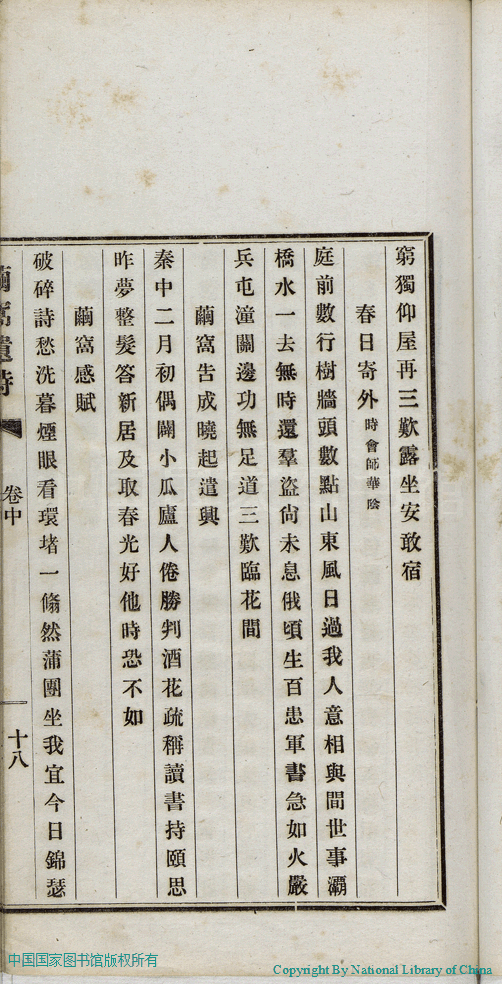 窮獨仰屋再三歎露坐安敢宿
春日寄外時會師華陰
庭前數行樹牆頭數點山東風日過我人意相與閒世事灞
橋水一去無時還羣盜尙未息俄頃生百患軍書急如火嚴
兵屯潼關邊功無足道三歎臨花間
繭窩告成曉起遣興
秦中二月初偶闢小瓜廬人倦勝判酒花疏稱讀書持頤思
昨夢整髮答新居及取春光好他時恐不如
繭窩感賦
破碎詩愁洗暮煙眼看環堵一翛然蒲團坐我宜今日錦瑟
繭窩遺詩
卷中
十八
中国国家图书馆版权所有
Copyright By National Library of China